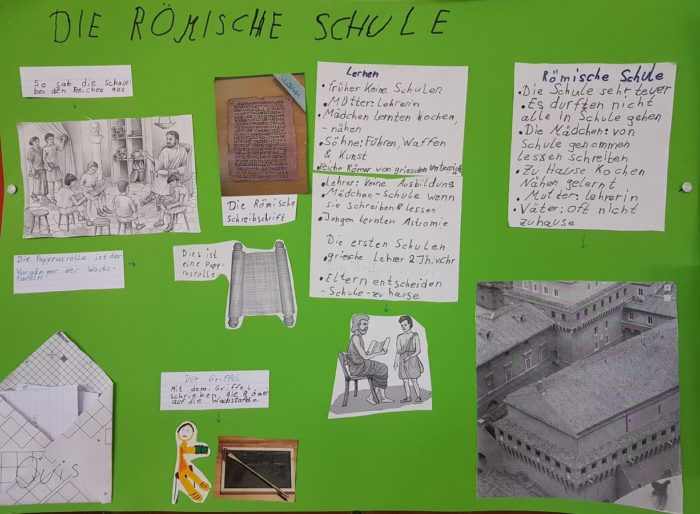 DIE RÖMISCHE SCHULE
So sah die Schule
bei den Reichen aus
Die Papyrusrolle ist der
Vorgänger der Wachs-
tafeln
Die Römische
Schreibschrift
Dies ist
eine Papy-
rusrolle
Der Griffel
Mit dem Griffel
schrieben die Römer
auf die Wachstafeln.
Quis
Lernen
• früher keine Schulen
• Mütter: Lehrerin
• Mädchen lernten kochen,
- nähen
• Söhne: Führen, Waffen
& Kunst
• reiche Römer von griechen Unterricht
• Lehrer: keine Ausbildung
• Mädchen - Schule wenn
sie Schreiben & lessen
• Jungen lernten Astromie
Die ersten Schulen
• griesche Lehrer 2 Jh. v. chr
• Eltern entscheiden
- Schule - zu hause
Römische Schule
• Die Schule sehr teuer
• Es durften nicht
alle in Schule gehen
• Die Mädchen: von
Schule genommen
lessen schreiben
• Zu Hause Kochen
Nähen gelernt
• Mutter: Lehrerin
• Väter: oft nicht
zuhause